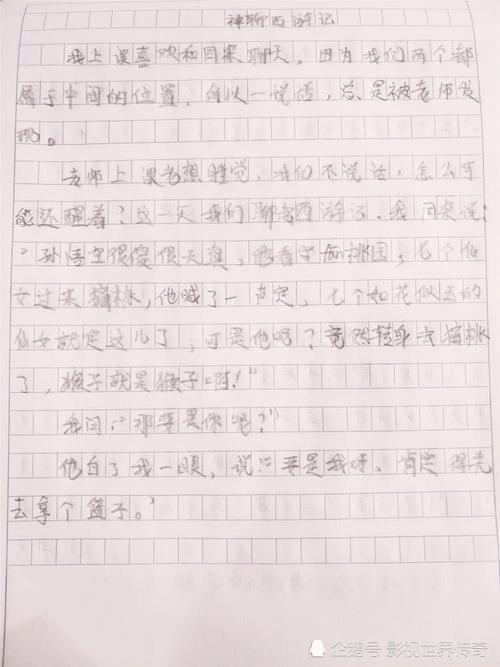 神聊西游记
我上课喜欢和同桌聊天,因为我们两个都
属于中间的位置,所以一说话,总是被老师发
现。
老师上课老想睡觉,我们不说话,怎么可
能还醒着?这一天我们聊起西游记。我同桌说:
"孙悟空很傻很天真,他看守蟠桃园,七个仙
女过来摘桃,他喊了一声定,七个如花似玉的
仙女就定这儿了,可是他呢?竟然转身去摘桃
了,猴子就是猴子啊!"
我问:"那要是你呢?"
他白了我一眼,说:"要是我呀,肯定得先
去拿个篮子。"
企鹅号 影视世界传奇